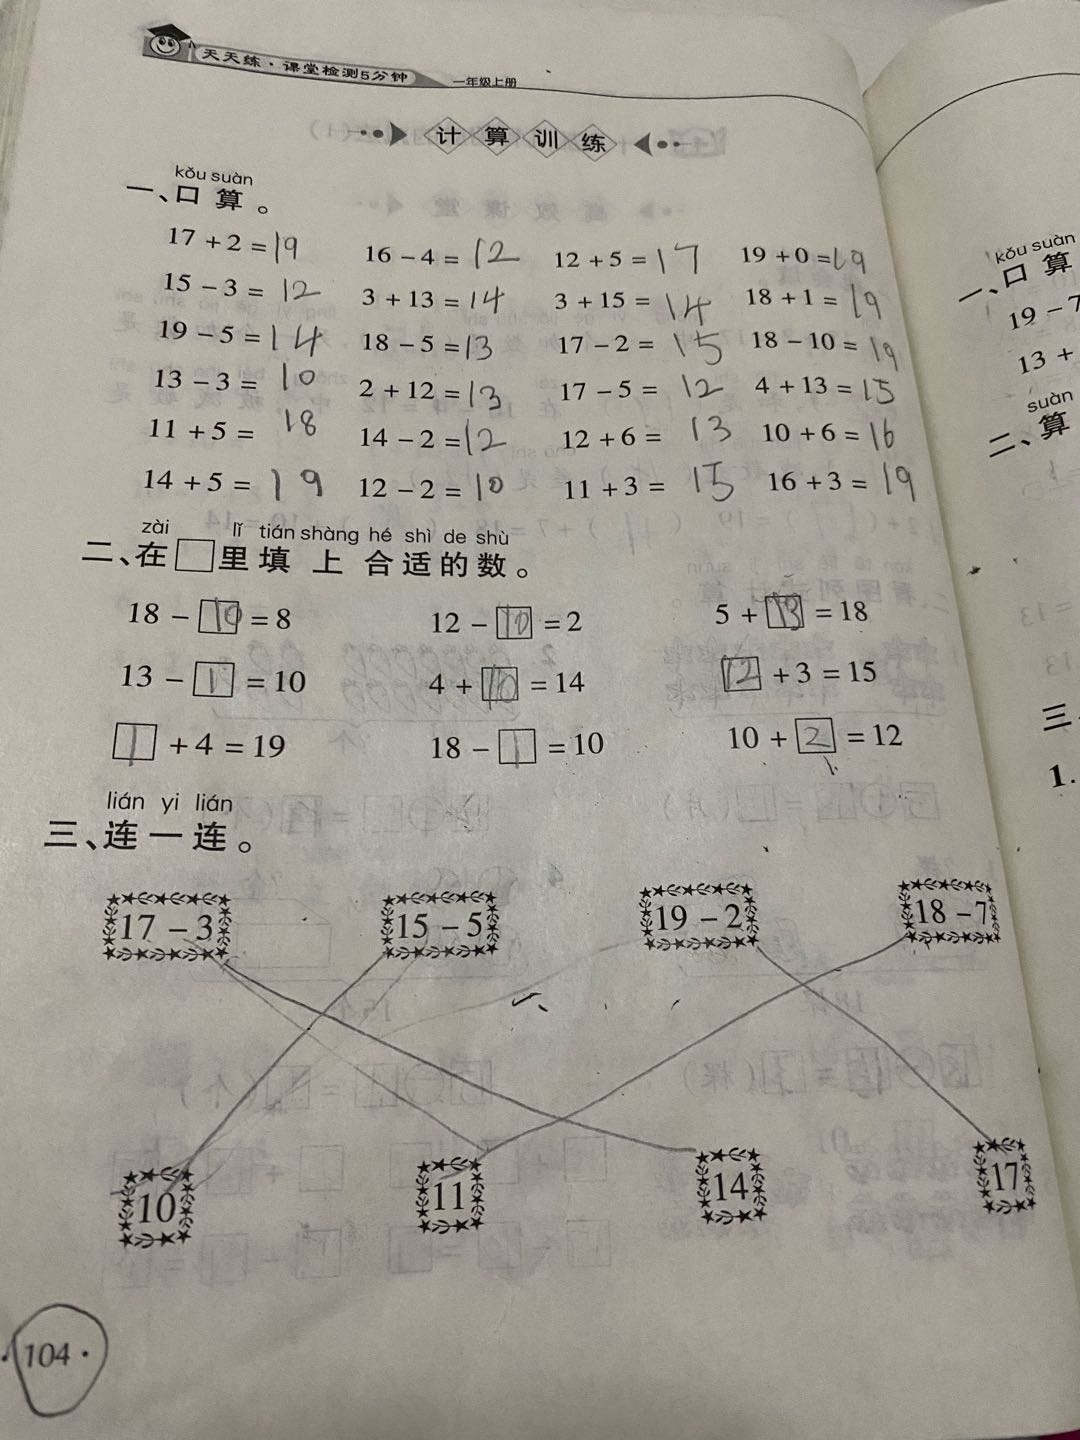 天天练·课堂检测5分钟 一年级上册
计算训练
kǒu suàn
一、口算。
17+2=19 16-4=12 12+5=17 19+0=19
15-3=12 3+13=14 3+15=14 18+1=19
19-5=14 18-5=13 17-2=15 18-10=19
13-3=10 2+12=13 17-5=12 4+13=15
11+5=18 14-2=12 12+6=13 10+6=16
14+5=19 12-2=10 11+3=15 16+3=19
zài lǐ tián shàng hé shì de shù
二、在□里填上合适的数。
18-10=8 12-10=2 5+13=18
13-1=10 4+10=14 12+3=15
1+4=19 18-1=10 10+2=12
lián yi lián
三、连一连。
17-3 15-5 19-2 18-7
10 11 14 17
·104·
kǒu suàn
一、口算
19-7
13+
suàn
二、算
三
1.